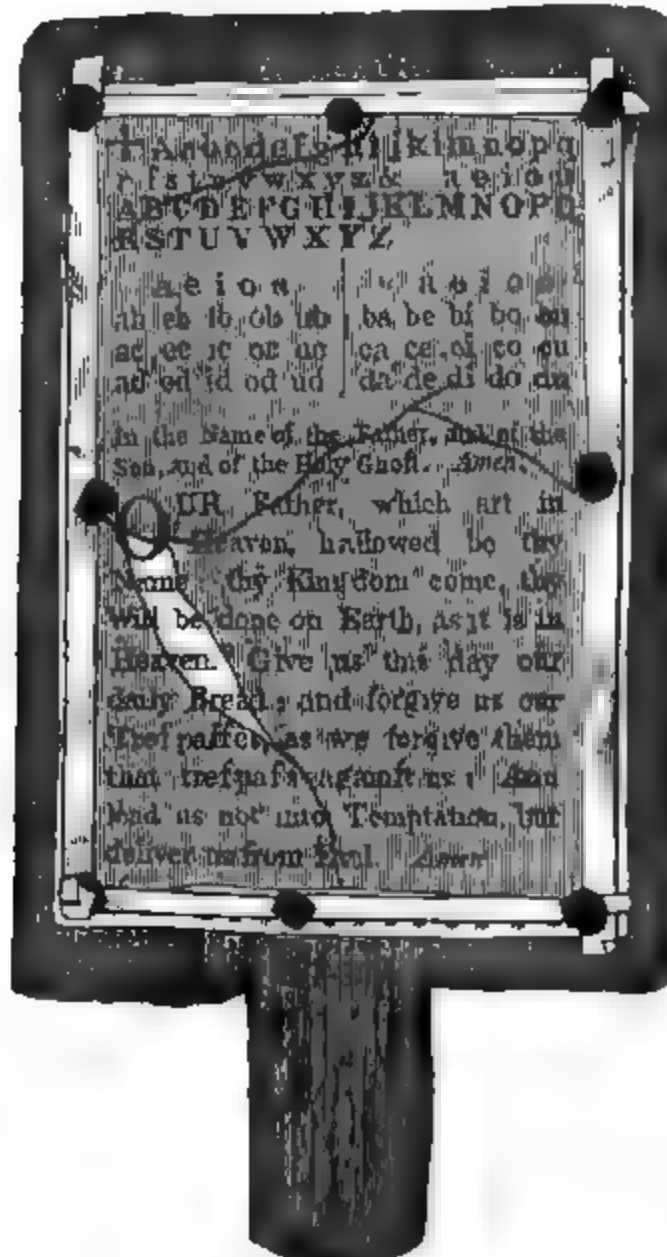 ✠ A a b c d e f g h i j k l m n o p q
r ſ s t u v w x y z & a e i o u
A B C D E F G H I J K L M N O P Q
R S T U V W X Y Z
a e i o u a e i o u
ab eb ib ob ub ba be bi bo bu
ac ec ic oc uc ca ce ci co cu
ad ed id od ud da de di do du
In the Name of the Father, and of the
Son, and of the Holy Ghoſt. Amen.
OUR Father, which art in
Heaven, hallowed be thy
Name, thy Kingdom come, thy
Will be done on Earth, as it is in
Heaven. Give us this day our
daily Bread; and forgive us our
Treſpaſſes, as we forgive them
that treſpaſs againſt us: And
lead us not into Temptation, but
deliver us from Evil. Amen